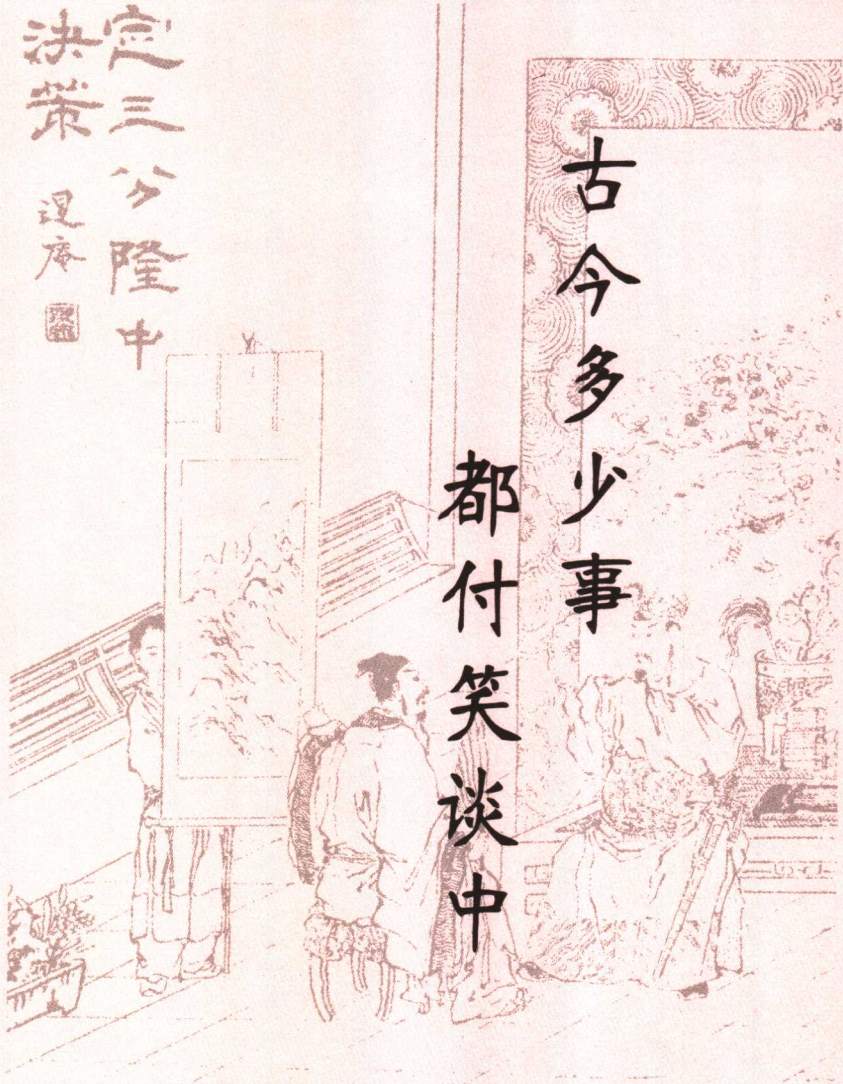 古今多少事
都付笑谈中
定三分隆中
決策